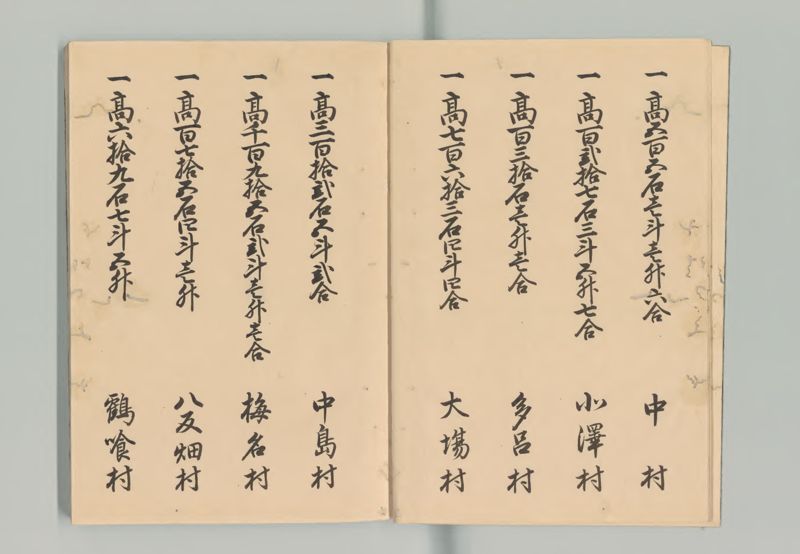 一高五百五石壱斗壱升六合 中村
一高百弐拾七石三斗五升七合 小澤村
一高百三拾石壱升壱合 多呂村
一高七百六拾三石四斗四合 大場村
一高三百拾弐石五斗弐合 中島村
一高千百九拾五石弐斗壱升壱合 梅名村
一高百七拾五石四斗壱升 八反畑村
一高六拾九石七斗五升 鶴喰村